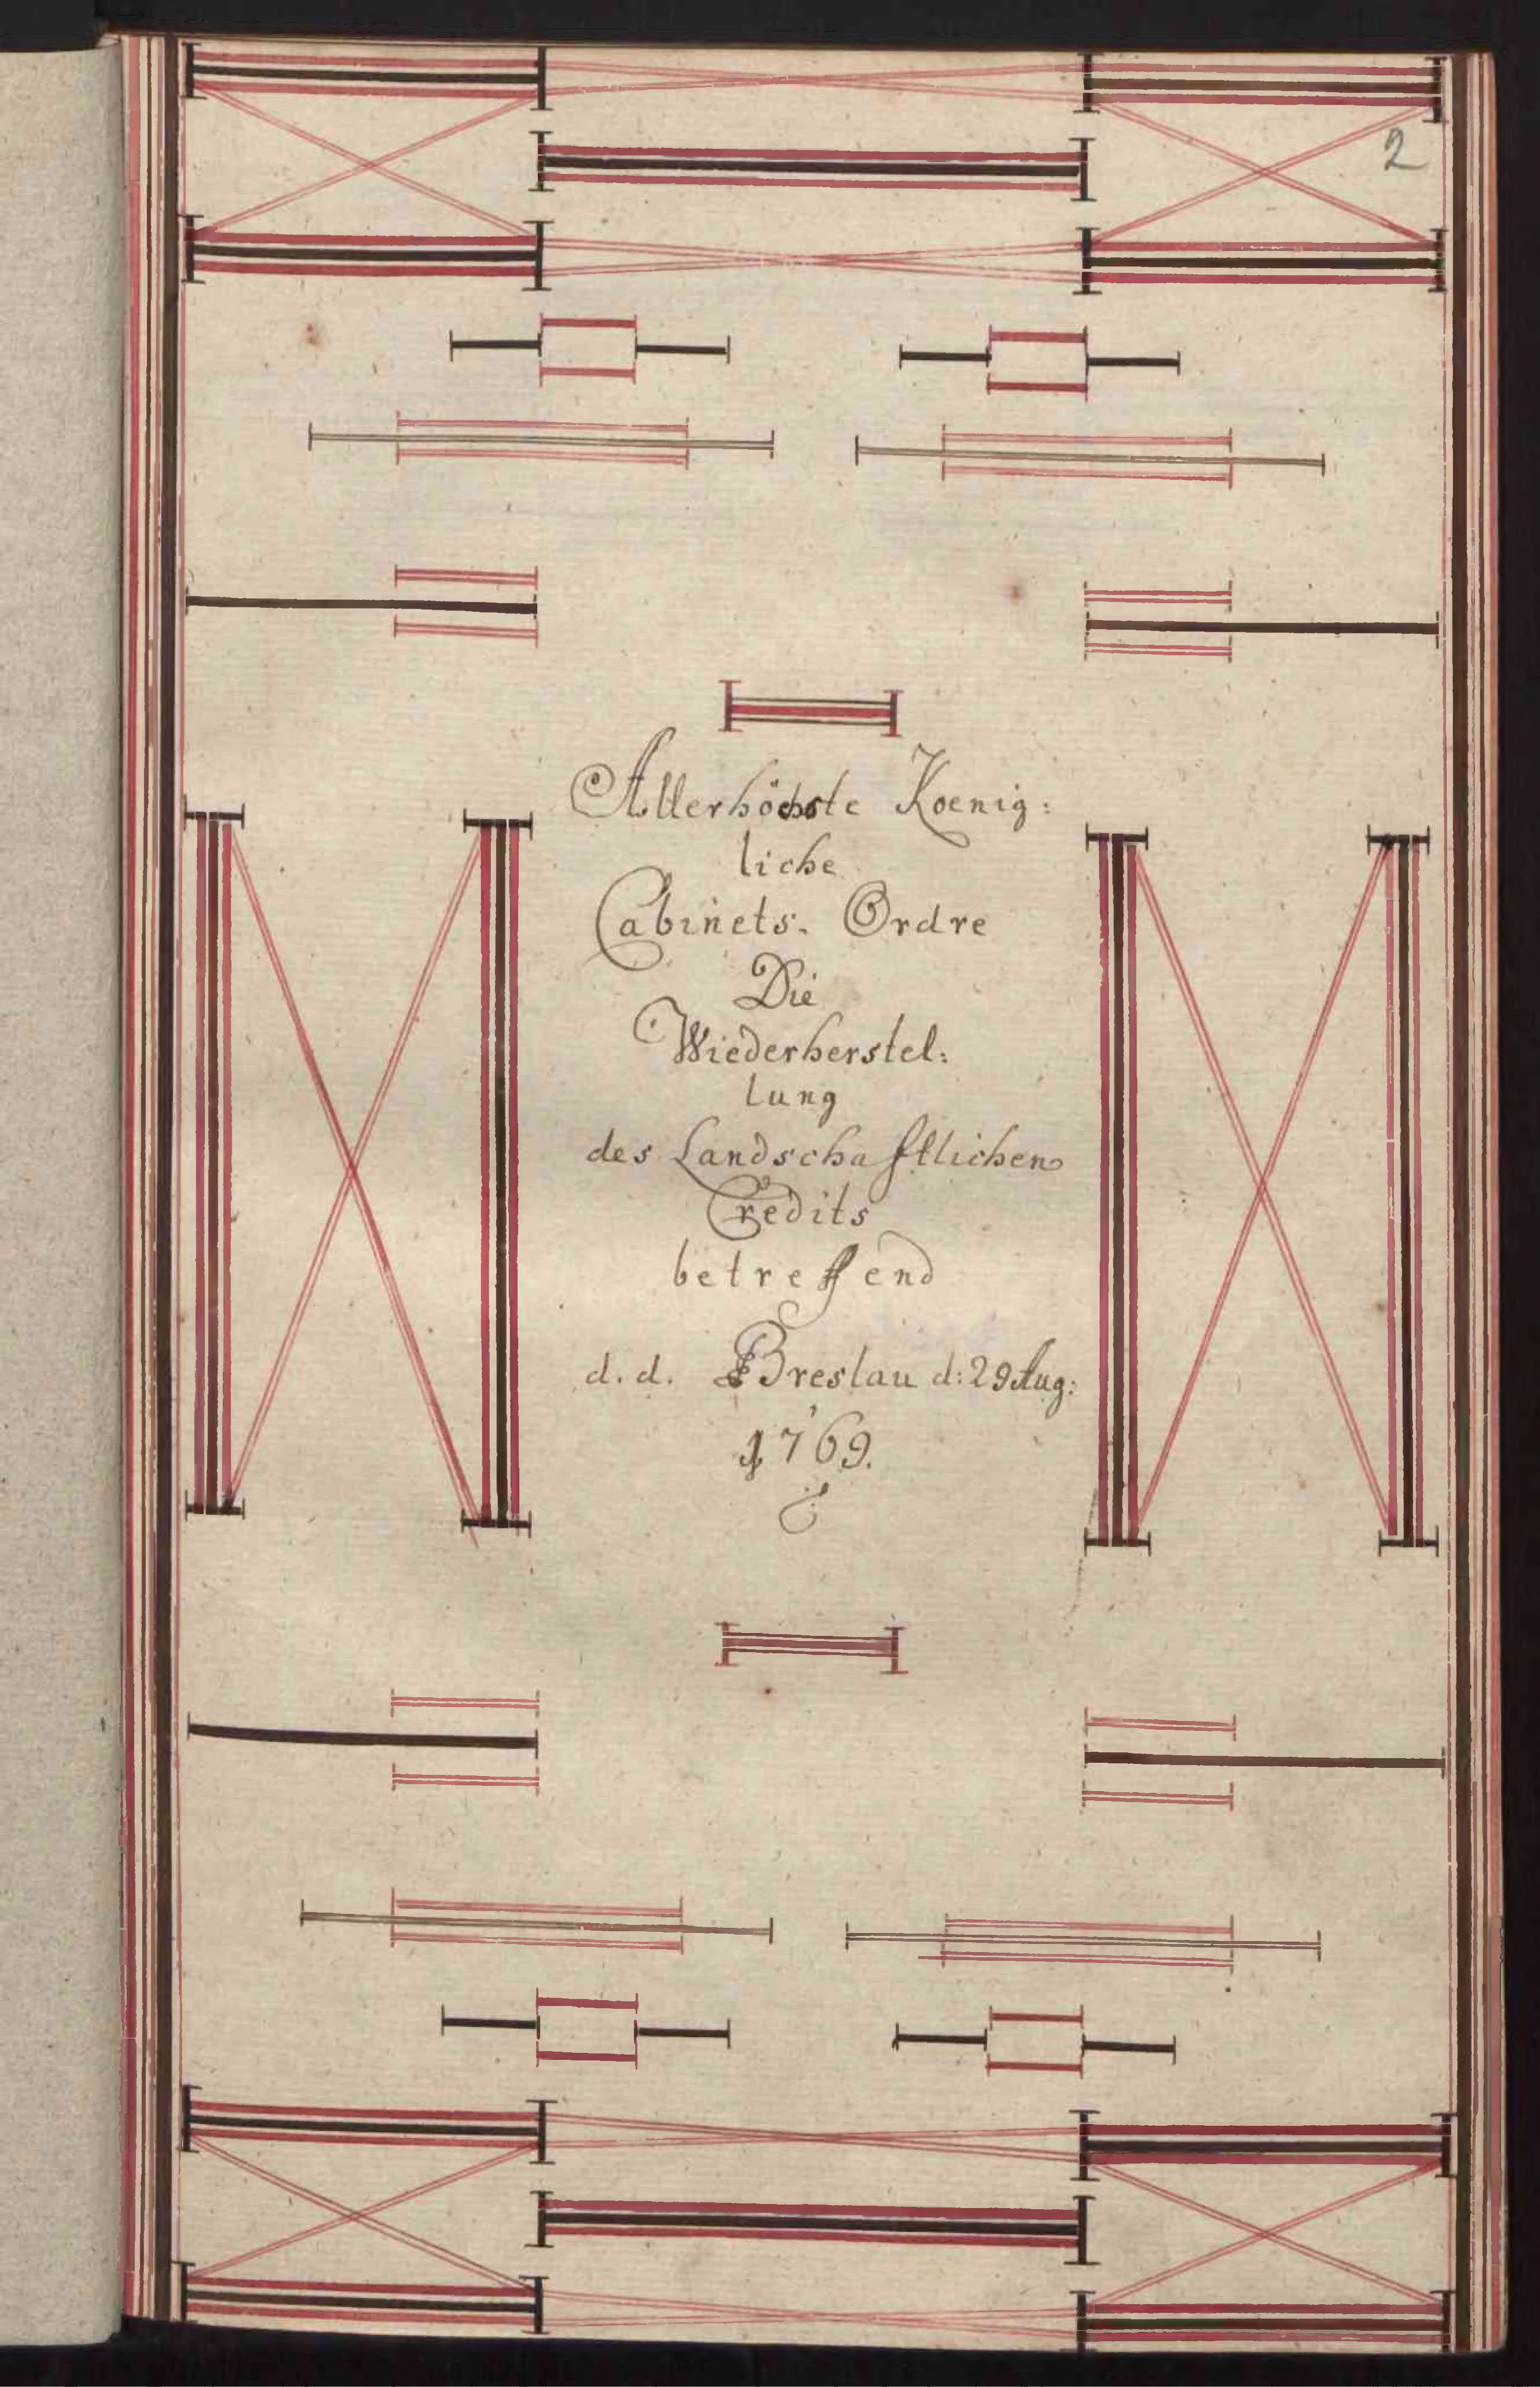 2
Allerhöchste Koenig:
liche
Cabinets. Ordre
Die
Wiederherstel:
lung
des Landschafftlichen
Credits
betreffend
d. d. Breslau d: 29 Aug:
1769.